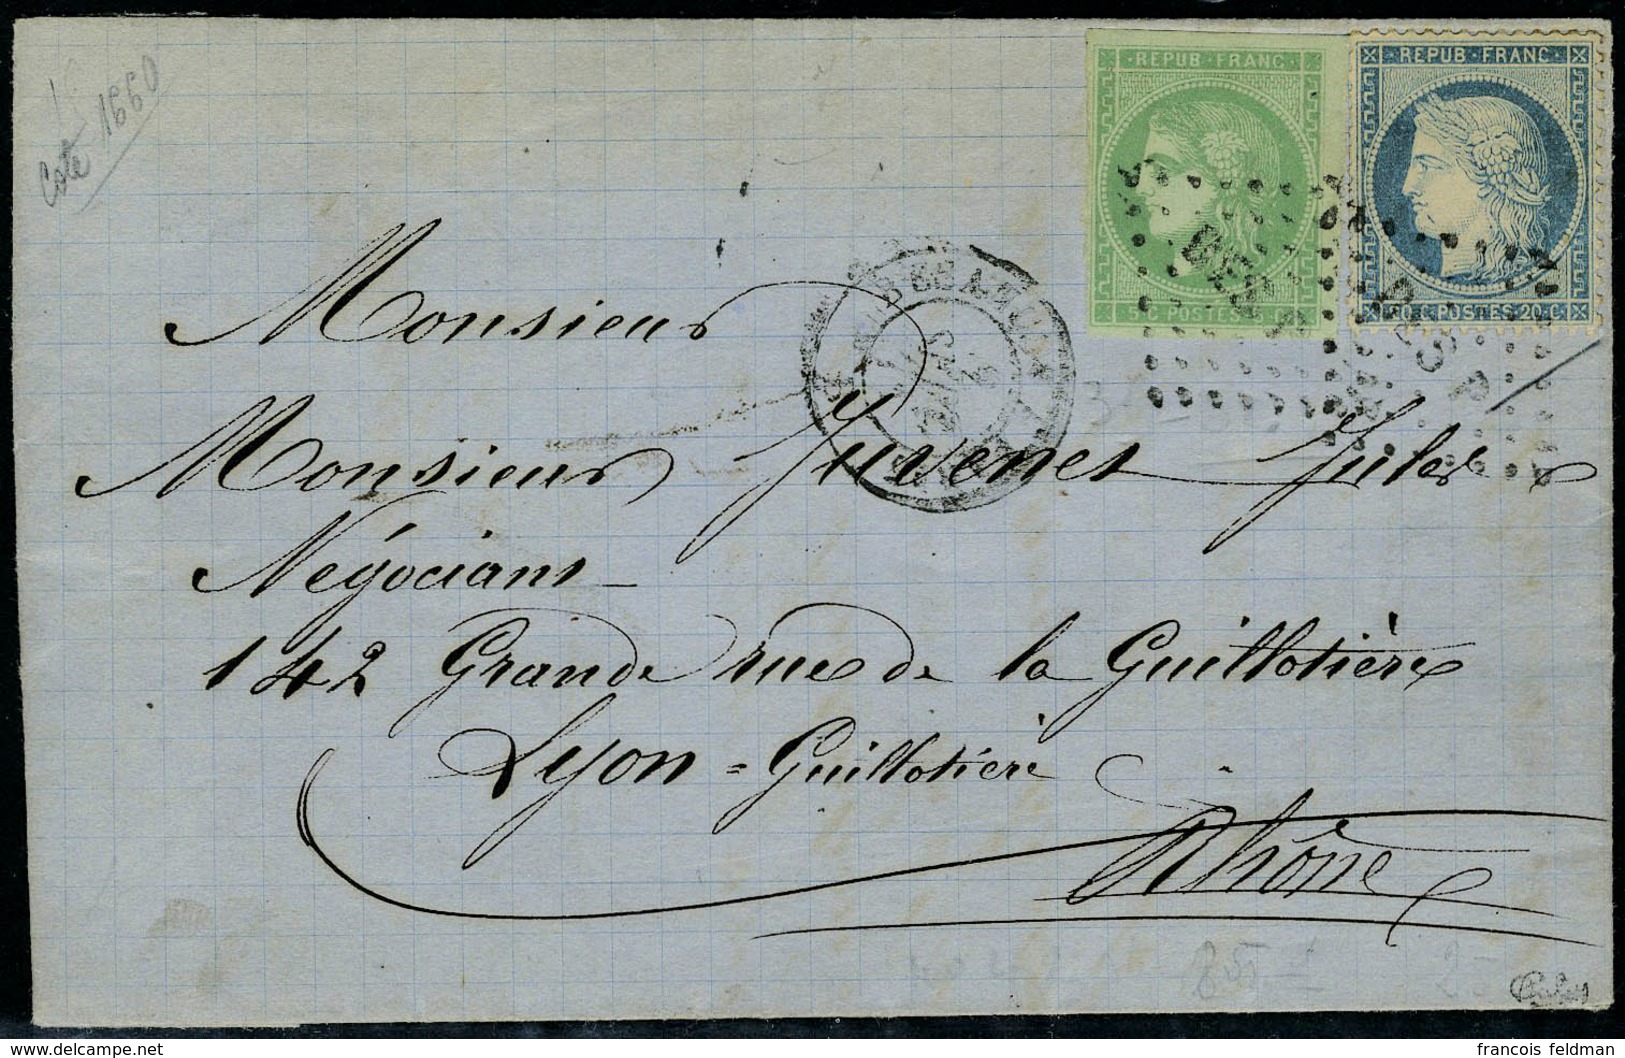 Cote 1660
REPUB · FRANC
5 C POSTES 5 C
REPUB · FRANC
20 C POSTES 20 C
Monsieur
Monsieur Juvenet Jules
Négociant
142 Grande rue de la Guillotière
Lyon = Guillotière
Rhône
85
25
www.delcampe.net
francois feldman